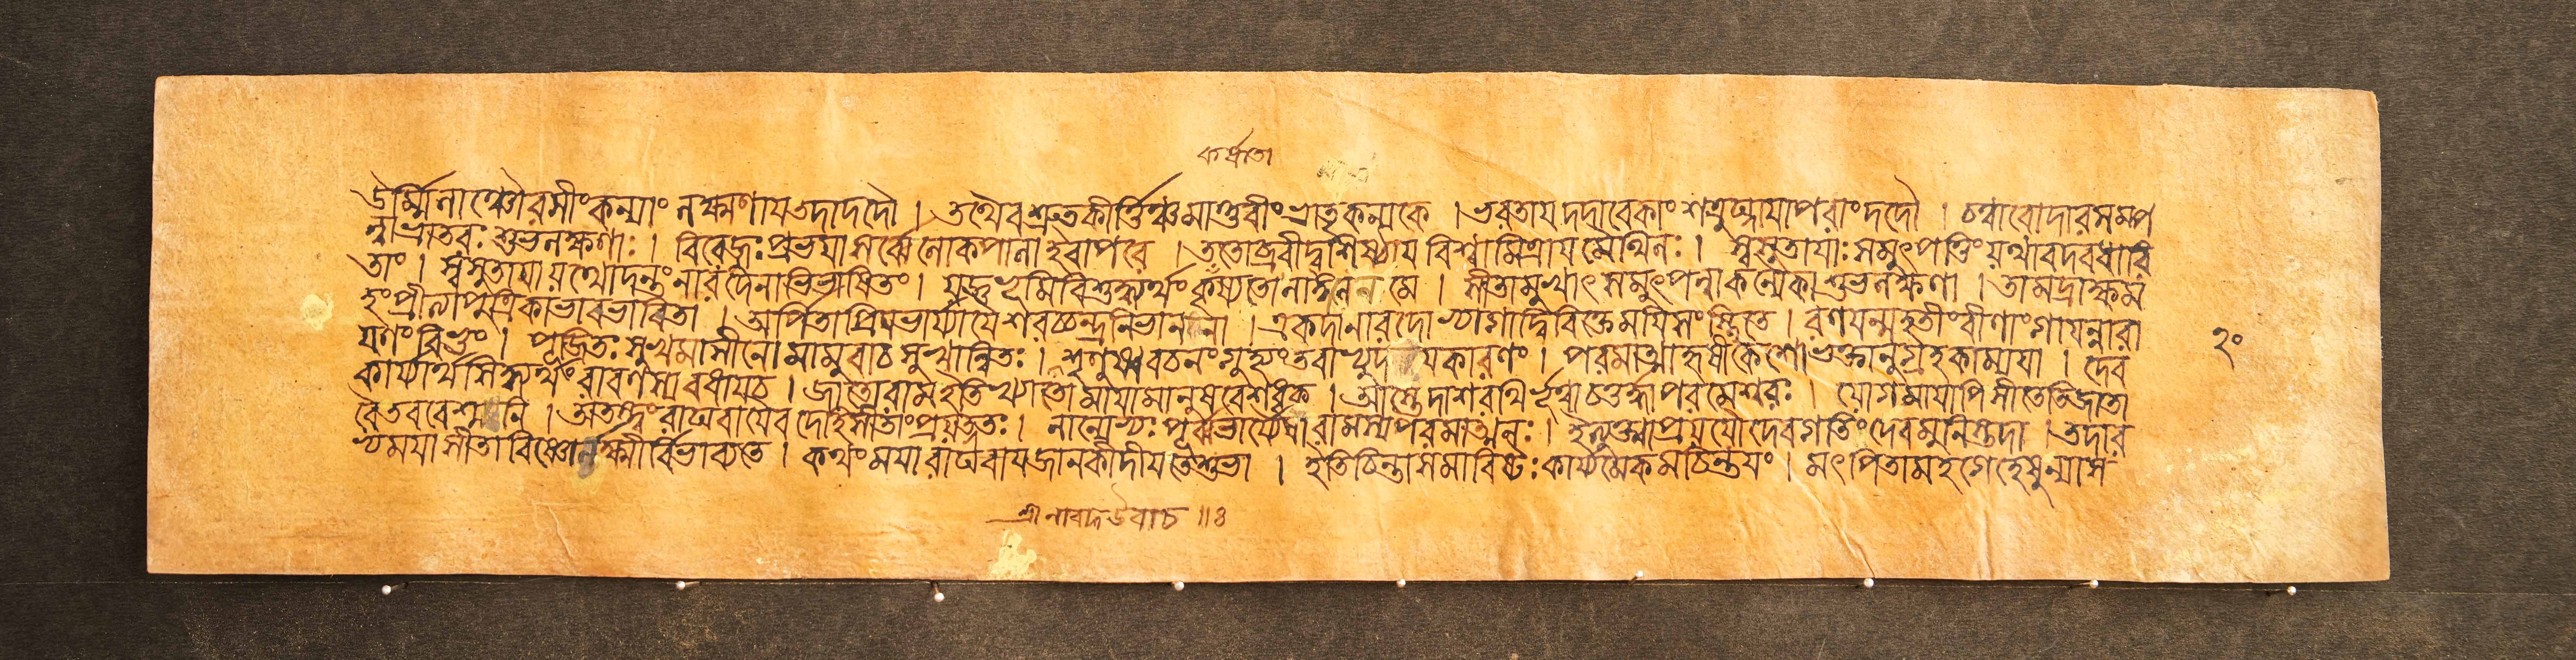 ঔর্ম্মিলাঞ্চৌরসীংকন্যাং লক্ষ্মণাযতদাদদৌ । তথৈব শ্রুতকীর্ত্তিঞ্চমাণ্ডবীংভ্রাতৃকন্যকে । ভরতাযদদাবেকাংশত্রুঘ্নাযাপরাংদদৌ । চত্বারোদারসম্প
ন্নাভ্রাতরঃ শুভলক্ষণাঃ । বিরেজুঃপ্রভযাসর্ব্বেলোকপালাইবাপরে । ততোব্রবীদ্বশিষ্ঠাযবিশ্বামিত্রাযমৈথিলঃ । স্বসুতাযাঃসমুৎপত্তিংযথাবদবধারি
তাং । স্বসুতাযাযথোদন্তংনারদেনাভিভাষিতং । যজ্ঞভূমিবিশুদ্ধ্যর্থংকৃষ্যতোলাঙ্গলেনমে । সীতামুখাৎসমুৎপন্নাকন্যকাশুভলক্ষণা । তামদ্রাক্ষম
হংপ্রীত্যাপুত্রিকাভাবভাবিতা । অর্পিতাপ্রিযভার্য্যাযৈশরচ্চন্দ্রনিভাননা । একদানারদোভ্যাগাদ্বিবিক্তেমযিসংস্থিতে । রণযন্মহতীংবীণাংগাযন্নারা
যণংবিভুং । পূজিতঃসুখমাসীনোমামুবাচসুখান্বিতঃ । শৃণুষ্ববচনংগুহ্যংতবাভ্যুদযকারণং । পরমাত্মাহৃষীকেশোভক্তানুগ্রহকাম্যযা । দেব
কার্য্যার্থসিদ্ধ্যর্থংরাবণস্যবধাযচ । জাতোরামইতিখ্যাতোমাযামানুষবেশধৃক । আস্তেদাশরথির্ভূত্বাচতুর্দ্ধাপরমেশ্বরঃ । যোগমাযাপিসীতেতিজাতা
বৈতববেশ্মনি । অতস্ত্বংরাঘবাযৈবদেহিসীতাংপ্রযত্নতঃ । নান্যেভ্যঃপূর্ব্বভার্য্যৈষারামস্যপরমাত্মনঃ । ইত্যুক্ত্বাপ্রযযৌদেবগতিংদেবমুনিস্তদা । তদার
ভ্যমযাসীতাবিষ্ণোর্লক্ষ্মীর্বিভাব্যতে । কথংমযারাঘবাযজানকীদীযতেশুভা । ইতিচিন্তাসমাবিষ্টঃকার্য্যমেকমচিন্তযং । মৎপিতামহগেহেষুন্যাস
শ্রীনারদউবাচ ॥৪